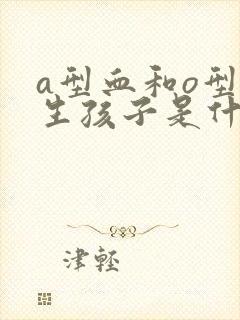 a型血和o型
生孩子是什
津轻